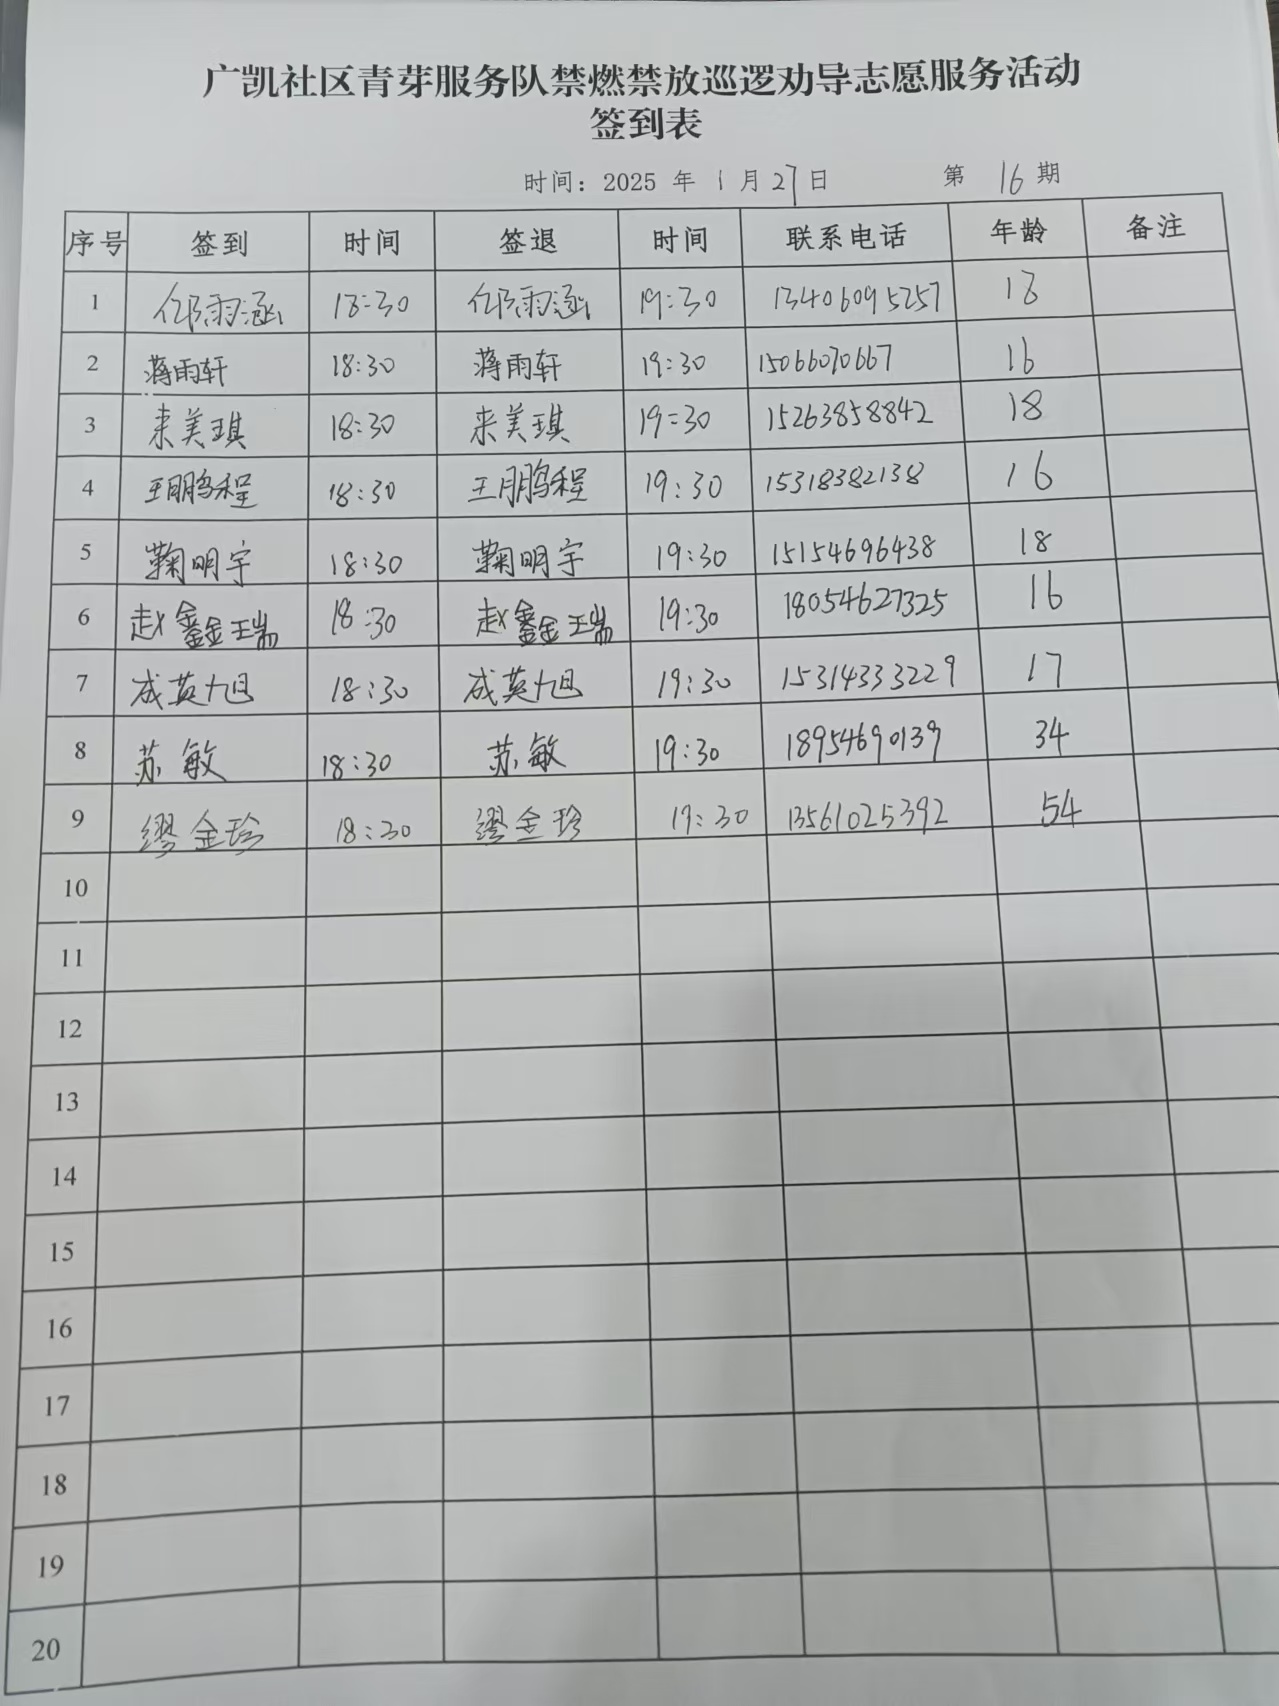 广凯社区青芽服务队禁燃禁放巡逻劝导志愿服务活动
签到表
时间：2025 年 1 月 27 日 第 16 期
序号 签到 时间 签退 时间 联系电话 年龄 备注
1 邝雨涵 18:30 邝雨涵 19:30 13406095257 18
2 蒋雨轩 18:30 蒋雨轩 19:30 15066070667 16
3 来美琪 18:30 来美琪 19:30 15263858842 18
4 王鹏程 18:30 王鹏程 19:30 15318382138 16
5 鞠明宇 18:30 鞠明宇 19:30 15154696438 18
6 赵鑫瑞 18:30 赵鑫瑞 19:30 18054627325 16
7 成英旭 18:30 成英旭 19:30 15314333229 17
8 苏敏 18:30 苏敏 19:30 18954690139 34
9 缪金珍 18:30 缪金珍 19:30 13561025392 54
10
11
12
13
14
15
16
17
18
19
20